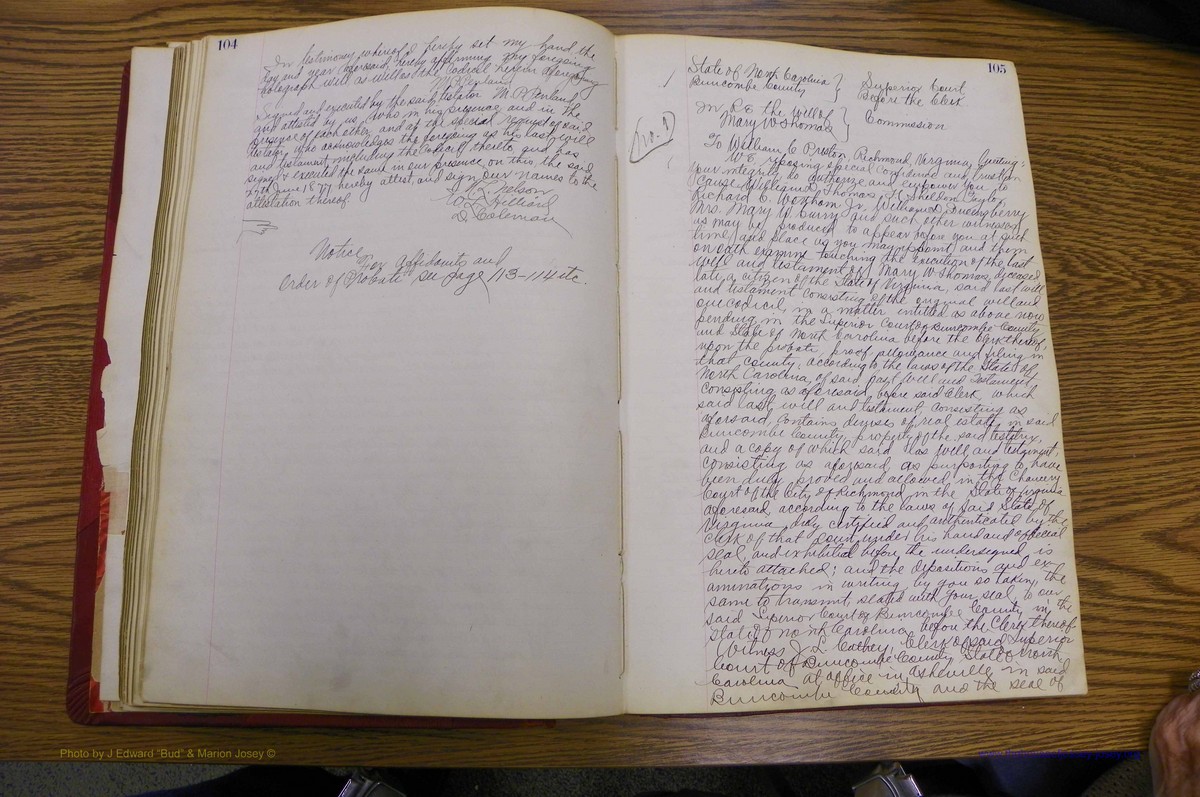 104
In testimony whereof I hereby set my hand the
day and year aforesaid, hereby affirming my foregoing
holograph will as well as the codicil
M. P. Penland
Signed and executed by the said testator M. P. Penland,
and attested by us, who in his presence and in the
presence of each other, and at the special request of said
testator, who acknowledges the foregoing as his last will
and testament including the codicil thereto and has
signed & executed the same in our presence on this, the said
27th June 1877 hereby attest, and sign our names to the
attestation thereof.
Nelson
Hilliard
D. Coleman
Notice
For affidavits and
order of Probate see page 113-114 etc.
105
State of North Carolina } Superior Court
Buncombe County } Before the Clerk
In Re the Will of }
Mary W Thomas } Commission
(No. 1)
To William C Preston, Richmond, Virginia, Greeting:
We, reposing special confidence and trust in
your integrity, do authorize and empower you to
cause Thomas, Sheldon Taylor,
Richard C. Wortham Jr,
Mrs. Mary W. Curry and such other witnesses
as may be produced to appear before you at such
time and place as you may appoint and them
on oath examine touching the execution of the last
will and testament of Mary W Thomas, deceased
late a citizen of the State of Virginia, said last will
and testament consisting of the original will and
one codicil, in a matter entitled as above now
pending in the Superior Court of Buncombe County
and State of North Carolina before the Clerk thereof
upon the probate, proof allowance and filing in
that county, according to the laws of the State of
North Carolina, of said last will and testament
consisting as aforesaid, before said Clerk, which
said last will and testament consisting as
aforesaid, contains devises of real estate in said
Buncombe County, property of the said testatrix,
and a copy of which said last will and testament,
consisting as aforesaid as purporting to have
been duly proved and allowed in the Chancery
Court of the City of Richmond in the State of Virginia
aforesaid, according to the laws of said State of
Virginia, duly certified and authenticated by the
Clerk of that Court under his hand and official
seal, and exhibited before the undersigned is
hereto attached; and the depositions and ex
aminations in writing, by you so taken, the
same to transmit, sealed with your seal, to our
said Superior Court of Buncombe County, in the
State of North Carolina, before the Clerk thereof
Witness J. L. Cathey, Clerk of said Superior
Court of Buncombe County, State of North
Carolina at office in Asheville, in said
Buncombe County and the seal of
Photo by J Edward "Bud" & Marion Josey ©